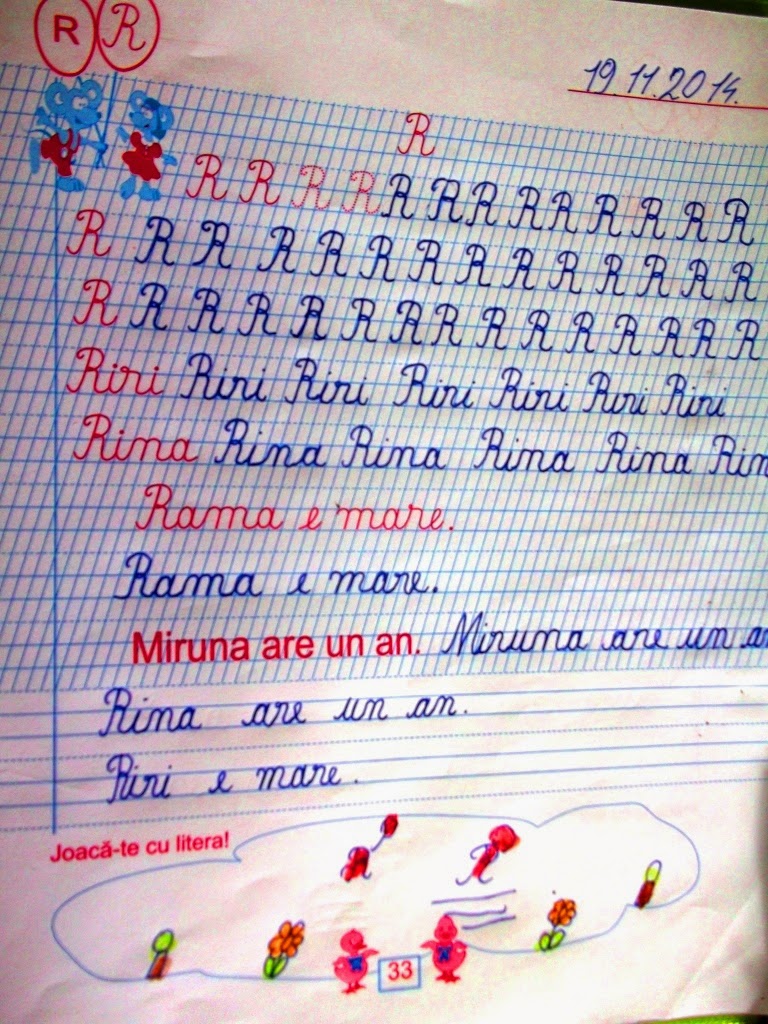 R R
19 11.2014.
R
R R R R R R R R R R R R R
R R R R R R R R R R R R R R
R R R R R R R R R R R R R R R
Riri Riri Riri Riri Riri Riri Riri
Rina Rina Rina Rina Rina Rin
Rama e mare.
Rama e mare.
Miruna are un an. Miruna are un an
Rina are un an.
Riri e mare.
Joacă-te cu litera!
R R
33